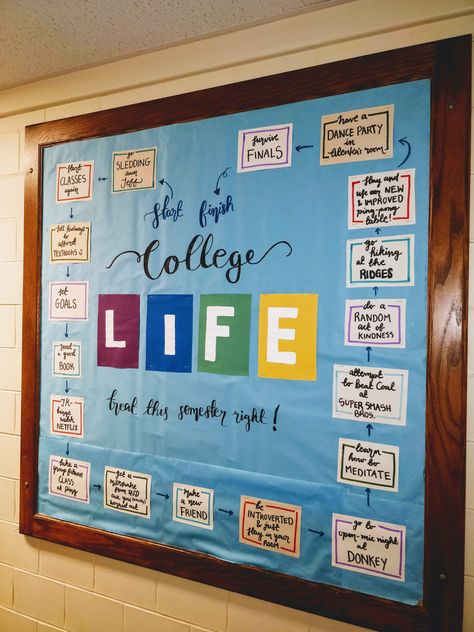 start
finish
College
LIFE
treat this semester right!
go
SLEDDING
down
Jeff
start
CLASSES
again
sell kidneys
to
afford
TEXTBOOKS
set
GOALS
read
a good
BOOK
JK-
binge
watch
NETFLIX
take a
group fitness
CLASS
at ping
get a
milkshake
from
you
make a
new
FRIEND
be
INTROVERTED
& just
stay in your
ROOM
go to
open-mic night
at
DONKEY
learn
how to
MEDITATE
attempt
to beat
at
SUPER SMASH
BROS.
do a
RANDOM
act of
KINDNESS
go
HIKING
at the
RIDGES
and
use our NEW
& IMPROVED
ping-pong
table!
have a
DANCE PARTY
in
room
survive
FINALS